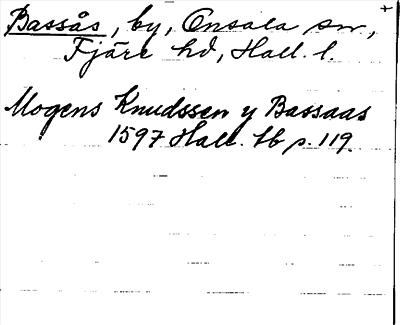 Bassås, by, Onsala sn,
Fjäre hd, Hall. l.
Mogens Knudssen y Bassaas
1597 Hall. lb p. 119.